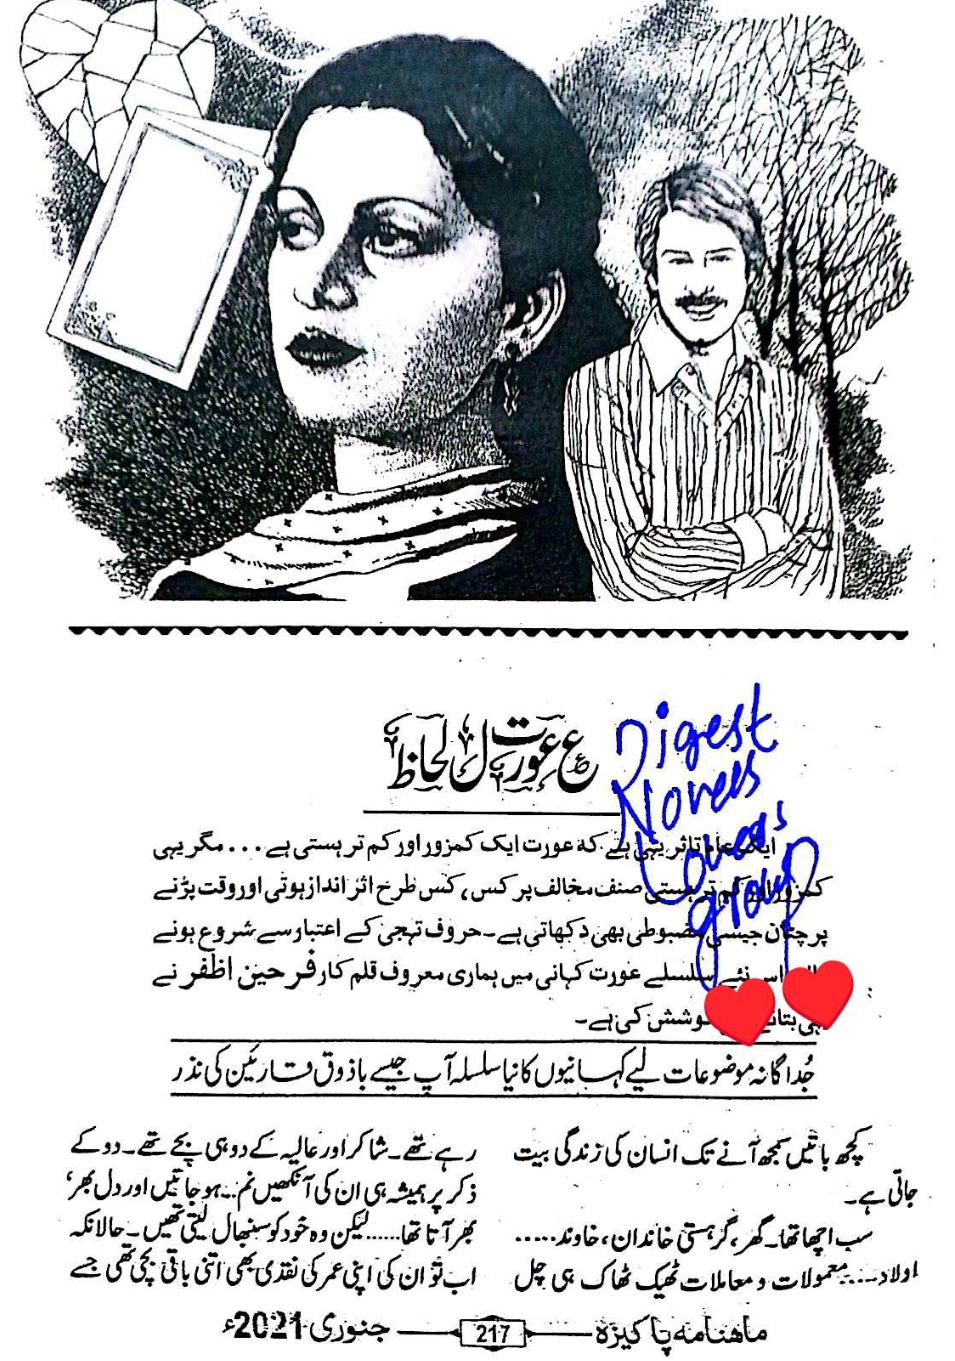 ع عورت ل لحاظ
Digest
Novels
Lovers
group
ایک عام تاثر یہی ہے کہ عورت ایک کمزور اور کم تر ہستی ہے ... مگر یہی
کمزور اور کم تر ہستی صنف مخالف پر کس، کس طرح اثر انداز ہوتی اور وقت پڑنے
پر چٹان جیسی مضبوطی بھی دکھاتی ہے۔ حروف تہجی کے اعتبار سے شروع ہونے
اس نئے سلسلے عورت کہانی میں ہماری معروف قلم کار فرحین اظفر نے
کوشش کی ہے۔
جُداگانہ موضوعات لیے کہانیوں کا نیا سلسلہ آپ جیسے باذوق قارئین کی نذر
کچھ باتیں سمجھ آنے تک انسان کی زندگی بیت
جاتی ہے۔
سب اچھا تھا۔ گھر، گرہستی خاندان، خاوند.....
اولاد.... معمولات و معاملات ٹھیک ٹھاک ہی چل
رہے تھے۔ شاکر اور عالیہ کے دو ہی بچے تھے۔ دو کے
ذکر پر ہمیشہ ہی ان کی آنکھیں نم.. ہو جاتیں اور دل بھر،
بھر آتا تھا...... لیکن وہ خود کو سنبھال لیتی تھیں۔ حالانکہ
اب تو ان کی اپنی عمر کی نقدی بھی اتنی باقی بچی تھی جسے
ماهنامه پاکیزه 217 جنوری 2021ء